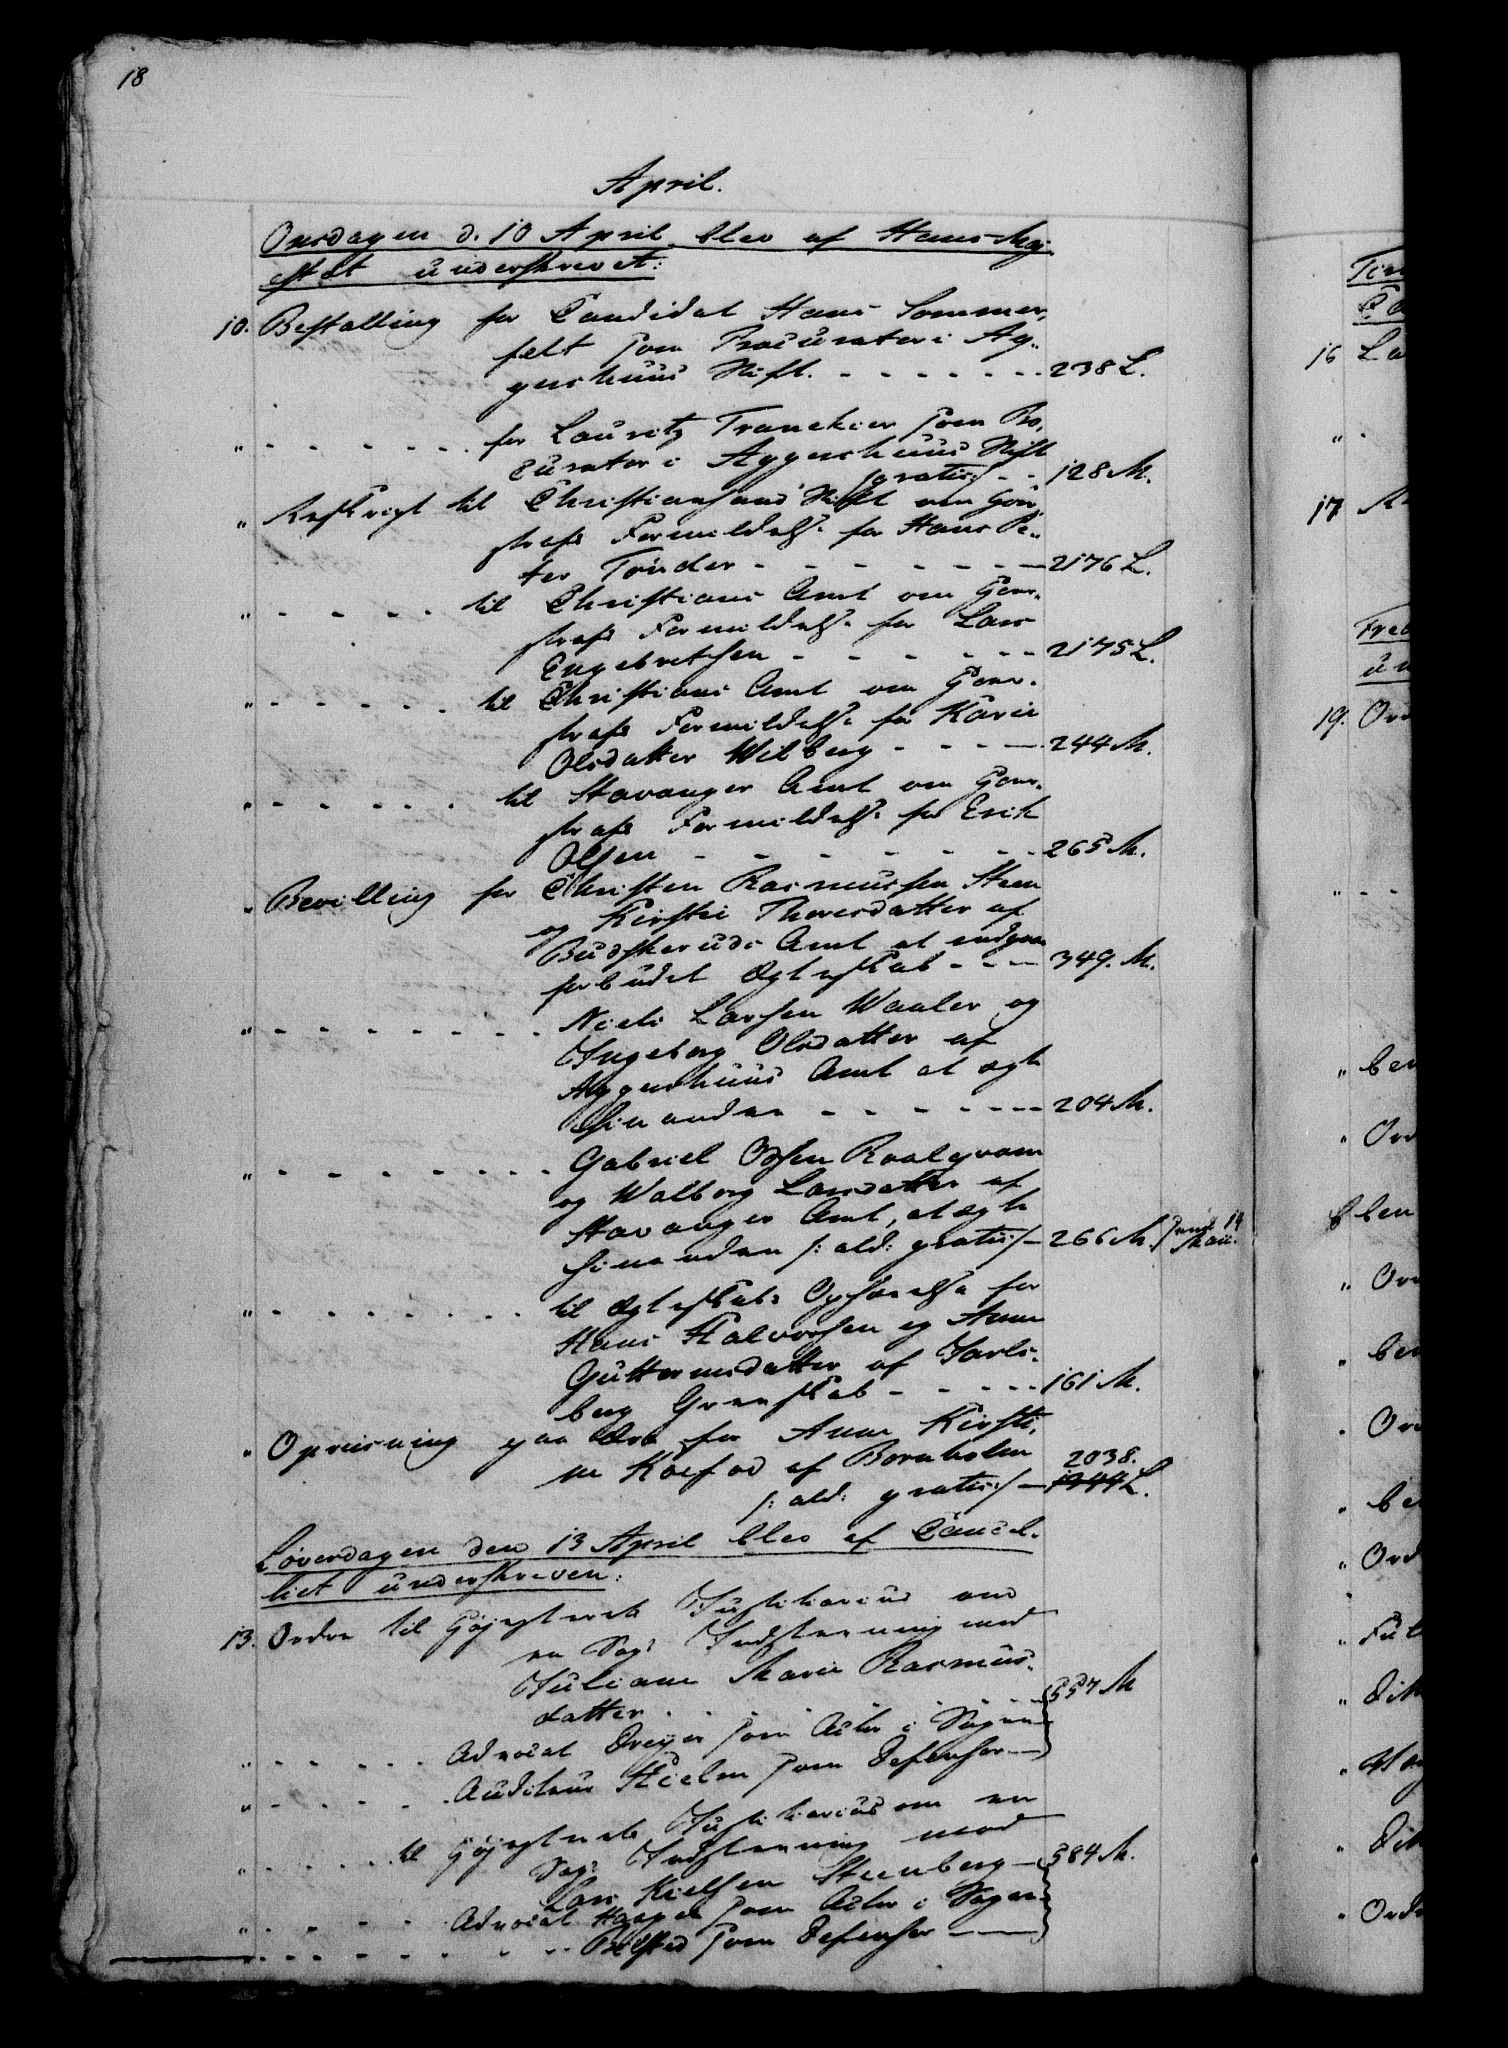 18
April.
Onsdagen d. 10 April blev af Hans Maj-
estæt underskrevet:
10. Bestalling for Candidat Hans Sommer-
felt som Procurator i Ag-
gershuus Stift. - - - - - - 238 L.
" - - - - - for Lauritz Tranekier som Pro-
curator i Aggershuus Stift
/gratis/ - - 128 M.
" Rescript til Christiansand Stift om Gov.
strafs Formildelse for Hans Pe-
ter Tönder - - - - - - 2176 L.
" - - - - til Christians Amt om Gov.
strafs Formildelse for Lars
Engebretsen - - - - - - 2175 L.
" - - - - - til Christians Amt om Gov.
strafs Formildelse for Karie
Olsdatter Wilberg - - - - 244 M.
" - - - - - til Stavanger Amt om Gov.
strafs Formildelse for Erik
Olsen - - - - - - 265 M.
" Bevilling for Christen Rasmussen Steen
og Kirstie Thoresdatter af
Budskeruds Amt at indgaae
forbudet Ægteskab - - - 349. M.
" - - - - - - - Niels Larsen Waaler og
Ingeborg Olsdatter af
Aggershuus Amt at ægte
hinanden - - - - - - 204 M.
" - - - - - - - Gabriel Olsen
og Walborg Larsdatter af
Stavanger Amt, at ægte
hinanden /: ald: gratis/ - 266 M. 14
Maii.
" - - - - - - - til Ægteskabs Ophævelse for
Hans Halvorsen og Anne
Guttormsdatter af Jarls-
berg Grevskab - - - - - 161 M.
" Opreisning paa Ære for Anne Kirsti-
ne Koefod af Bornholm 2038.
/: ald: gratis:/ - 1944 L.
Løverdagen den 13 April blev af Cancel-
liet underskreven:
13. Ordre til Høiesterets Justitiarius om
en Sags Indstevning mod
Juliane Marie Rasmus-
datter - - - - 557 M
" - - - - - Advocat Dreyer som Actor i Sagen
" - - - - - Auditeur Hielm som Defensor
" - - - - - til Høiesterets Justitiarius om en
Sags Indstevning mod
Lars Nielsen Steenberg - 584 M.
" - - - - - Advocat Haagen som Actor i Sagen
" - - - - - - - - som Defensor
16
17
19.